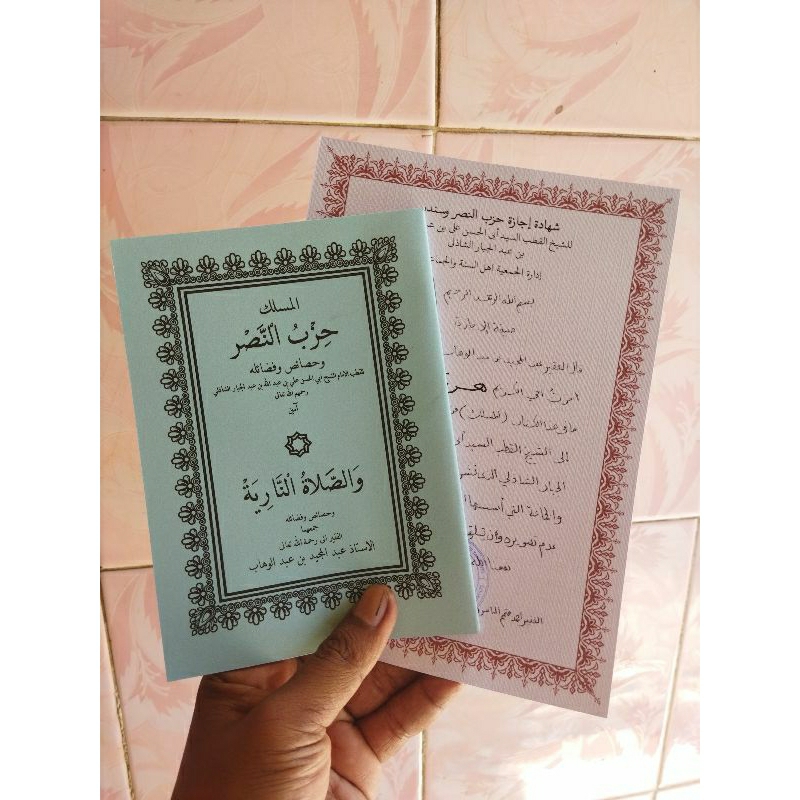 المسلك
حِزْبُ النَّصْر
وخصائص وفضائله
للقطب الامام الشيخ ابي الحسن علي بن عبد الله بن عبد الجبار الشاذلي
رحمهم الله تعالى
آمين
وَالصَّلَاةُ النَّارِيَةُ
وخصائص وفضائله
جمعهما
الفقير الى رحمة الله تعالى
الاستاذ عبد المجيد بن عبد الوهاب
شهادة إجازة حزب النصر وسنده
للشيخ القطب السيد أبي الحسن علي بن
بن عبد الجبار الشاذلي
إدارة الجمعية اهل السنة والجما
بسم الله الرحمن الرحيم
صيغة الإجازة
عبد المجيد بن عبد الوهاب
ما في هذا الكتاب (المسلك)
إلى الشيخ القطب السيد أبي
الجبار الشاذلي
التي أسسها
عدم تصويره وأن